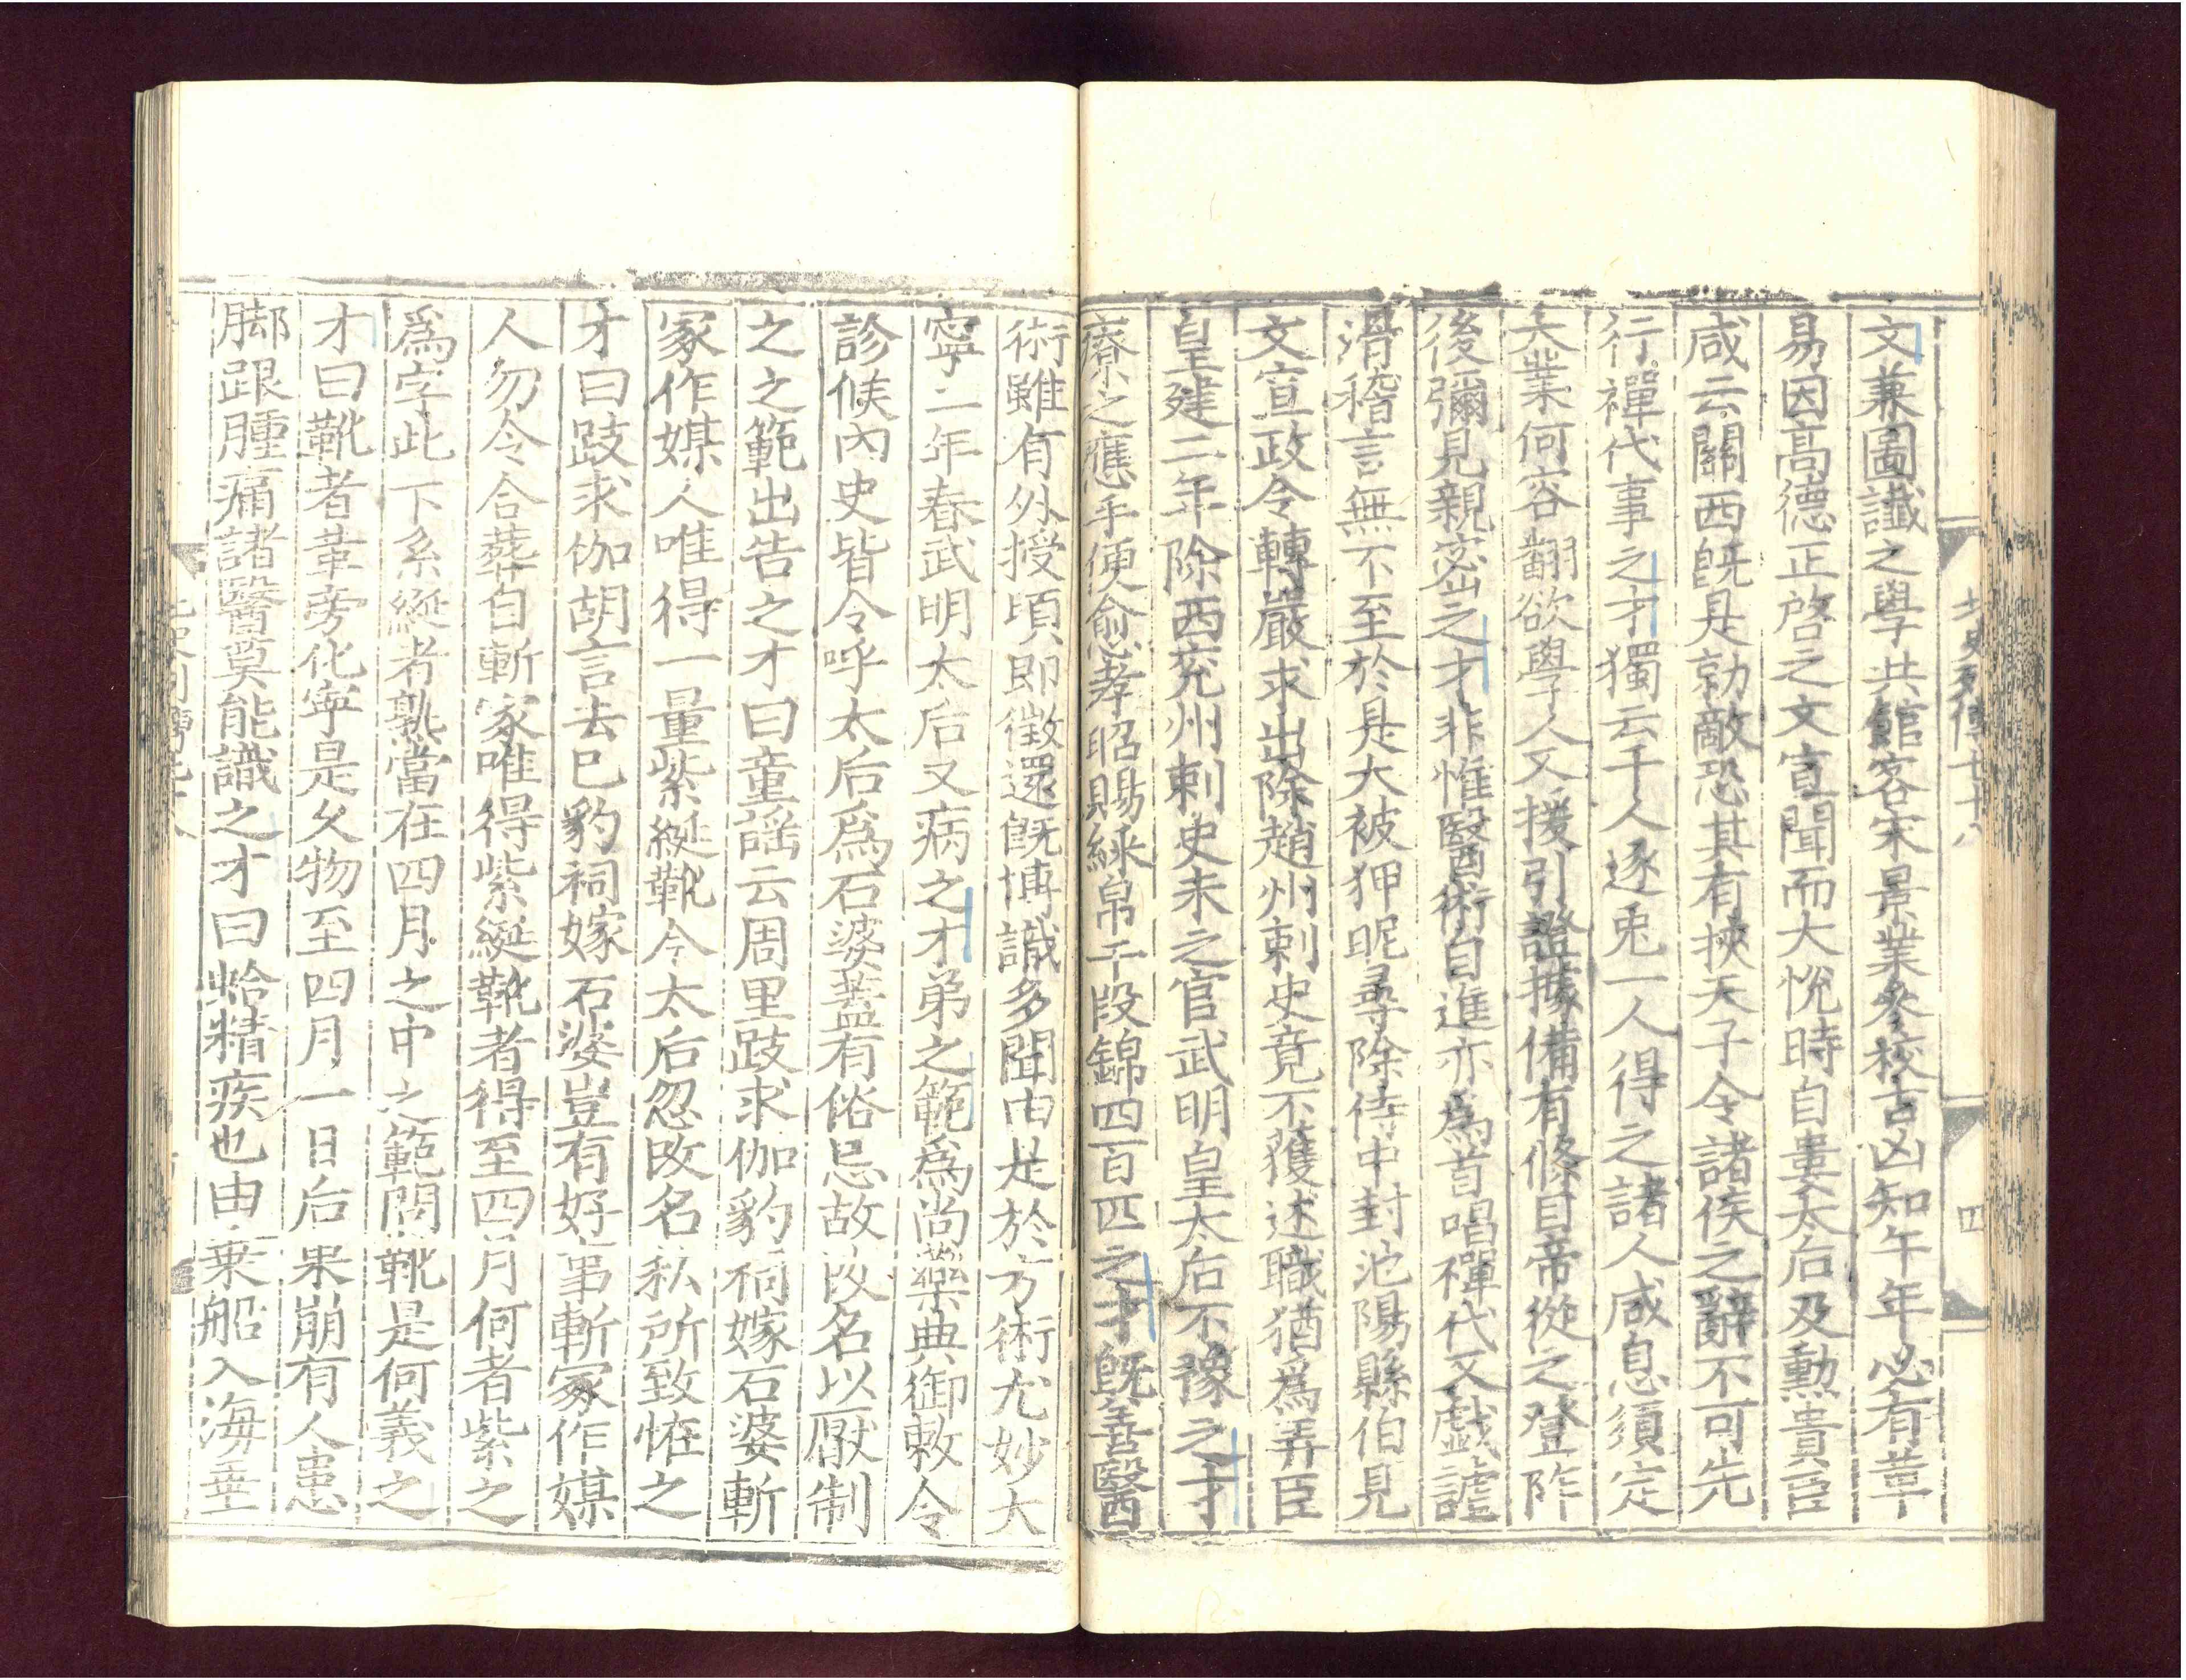 北史列傳七十八
四
文兼圖讖之學共館客宋景業參校吉凶知午年必有革
易因高德正啓之文宣聞而大悅時自婁太后及勳貴臣
咸云關西既是勍敵恐其有挾天子令諸侯之辭不可先
行禪代事之才獨云千人逐兎一人得之諸人咸息須定
大業何容翻欲學人又援引證據備有條目帝從之登阼
後彌見親密之才非惟醫術自進亦爲首唱禪代又戲謔
滑稽言無不至於是大被狎昵尋除侍中封池陽縣伯見
文宣政令轉嚴求出除趙州刺史竟不獲述職猶爲弄臣
皇建二年除西兖州刺史未之官武明皇太后不豫之才
療之應手便愈孝昭賜綵帛千段錦四百匹之才旣善醫
術雖有外授頃即徵還旣博識多聞由是於方術尤妙大
寧二年春武明太后又病之才弟之範爲尚藥典御敕令
診候內史皆令呼太后爲石婆蓋有俗忌故改名以厭制
之之範出告之才曰童謠云周里跂求伽豹祠嫁石婆斬
冢作媒人唯得一量紫綖靴今太后忽改名私所致恠之
才曰跂求伽胡言去巳豹祠嫁石婆豈有好事斬冢作媒
人勿令合葬自斬冢唯得紫綖靴者得至四月何者紫之
爲字此下糸綖者熟當在四月之中之範問靴是何義之
才曰靴者革旁化寧是久物至四月一日后果崩有人患
脚跟腫痛諸醫莫能識之才曰蛤精疾也由乗船入海垂